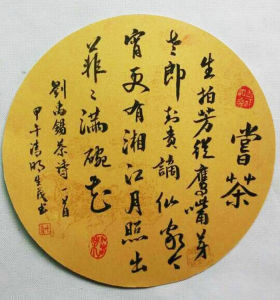 嘗茶
生拍芳從鷹嘴芽
老郎封寄謫仙家今
宵更有湘江月照出
菲〻滿碗花
劉禹錫茶詩一首
甲午清明書